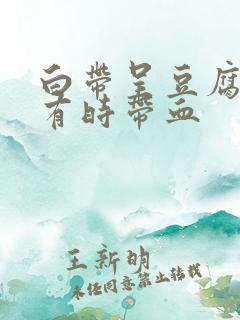 白带呈豆腐
有时带血
王新明
未经同意禁止转载